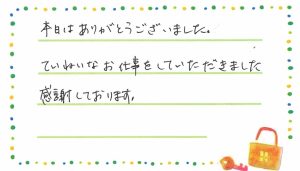 本日はありがとうございました。
ていねいなお仕事をしていただきました
感謝しております。